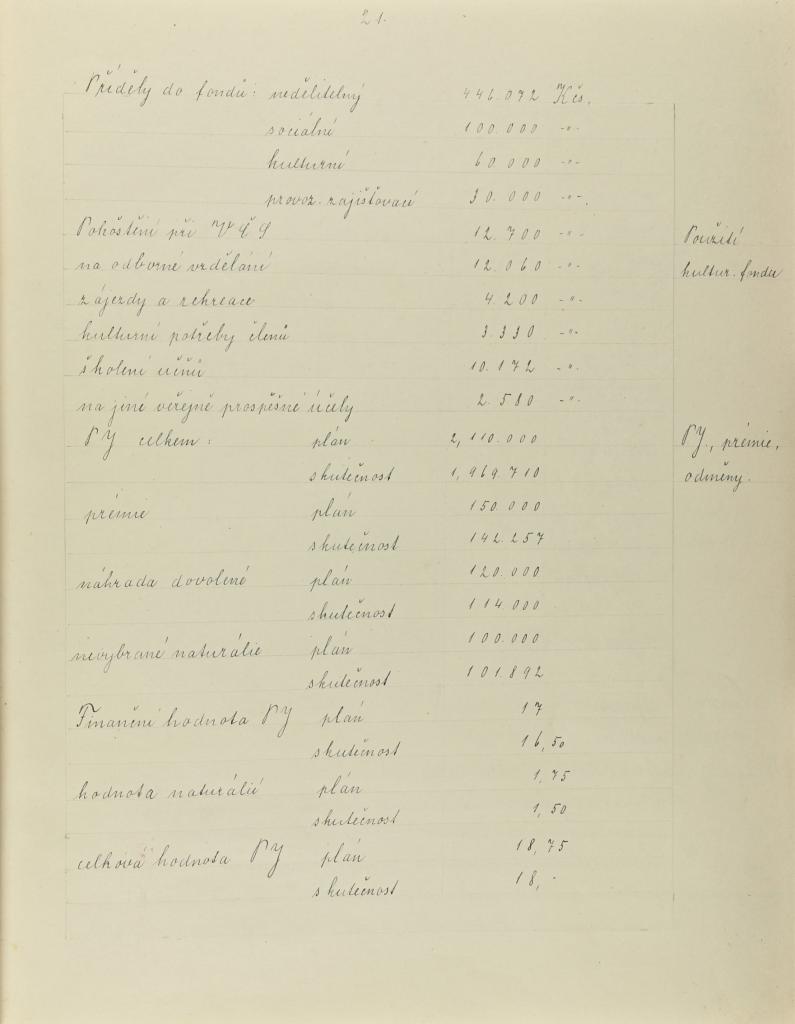 21.
Příděly do fondů: nedělitelný 446.092 Kčs.
sociální 100.000 -"-
kulturní 60.000 -"-
provoz. zajišťovací 30.000 -"-.
Pohoštění při VČS 12.700 -"- Použití
na odborné vzdělání 12.060 -"- kultur. fondu
zájezdy a rekreace 4.200 -"-
kulturní potřeby členů 3.330 -"-
školení učňů 10.172 -"-
na jiné veřejně prospěšné účely 2.580 -"-
PJ celkem: plán 2,110.000 PJ., prémie,
skutečnost 1,969.710 odměny.
prémie plán 150.000
skutečnost 142.257
náhrada dovolené plán 120.000
skutečnost 114.000
nevybrané naturálie plán 100.000
skutečnost 101.892
Finanční hodnota PJ plán 17
skutečnost 16,50
hodnota naturálií plán 1,75
skutečnost 1,50
celková hodnota PJ plán 18,75
skutečnost 18,-